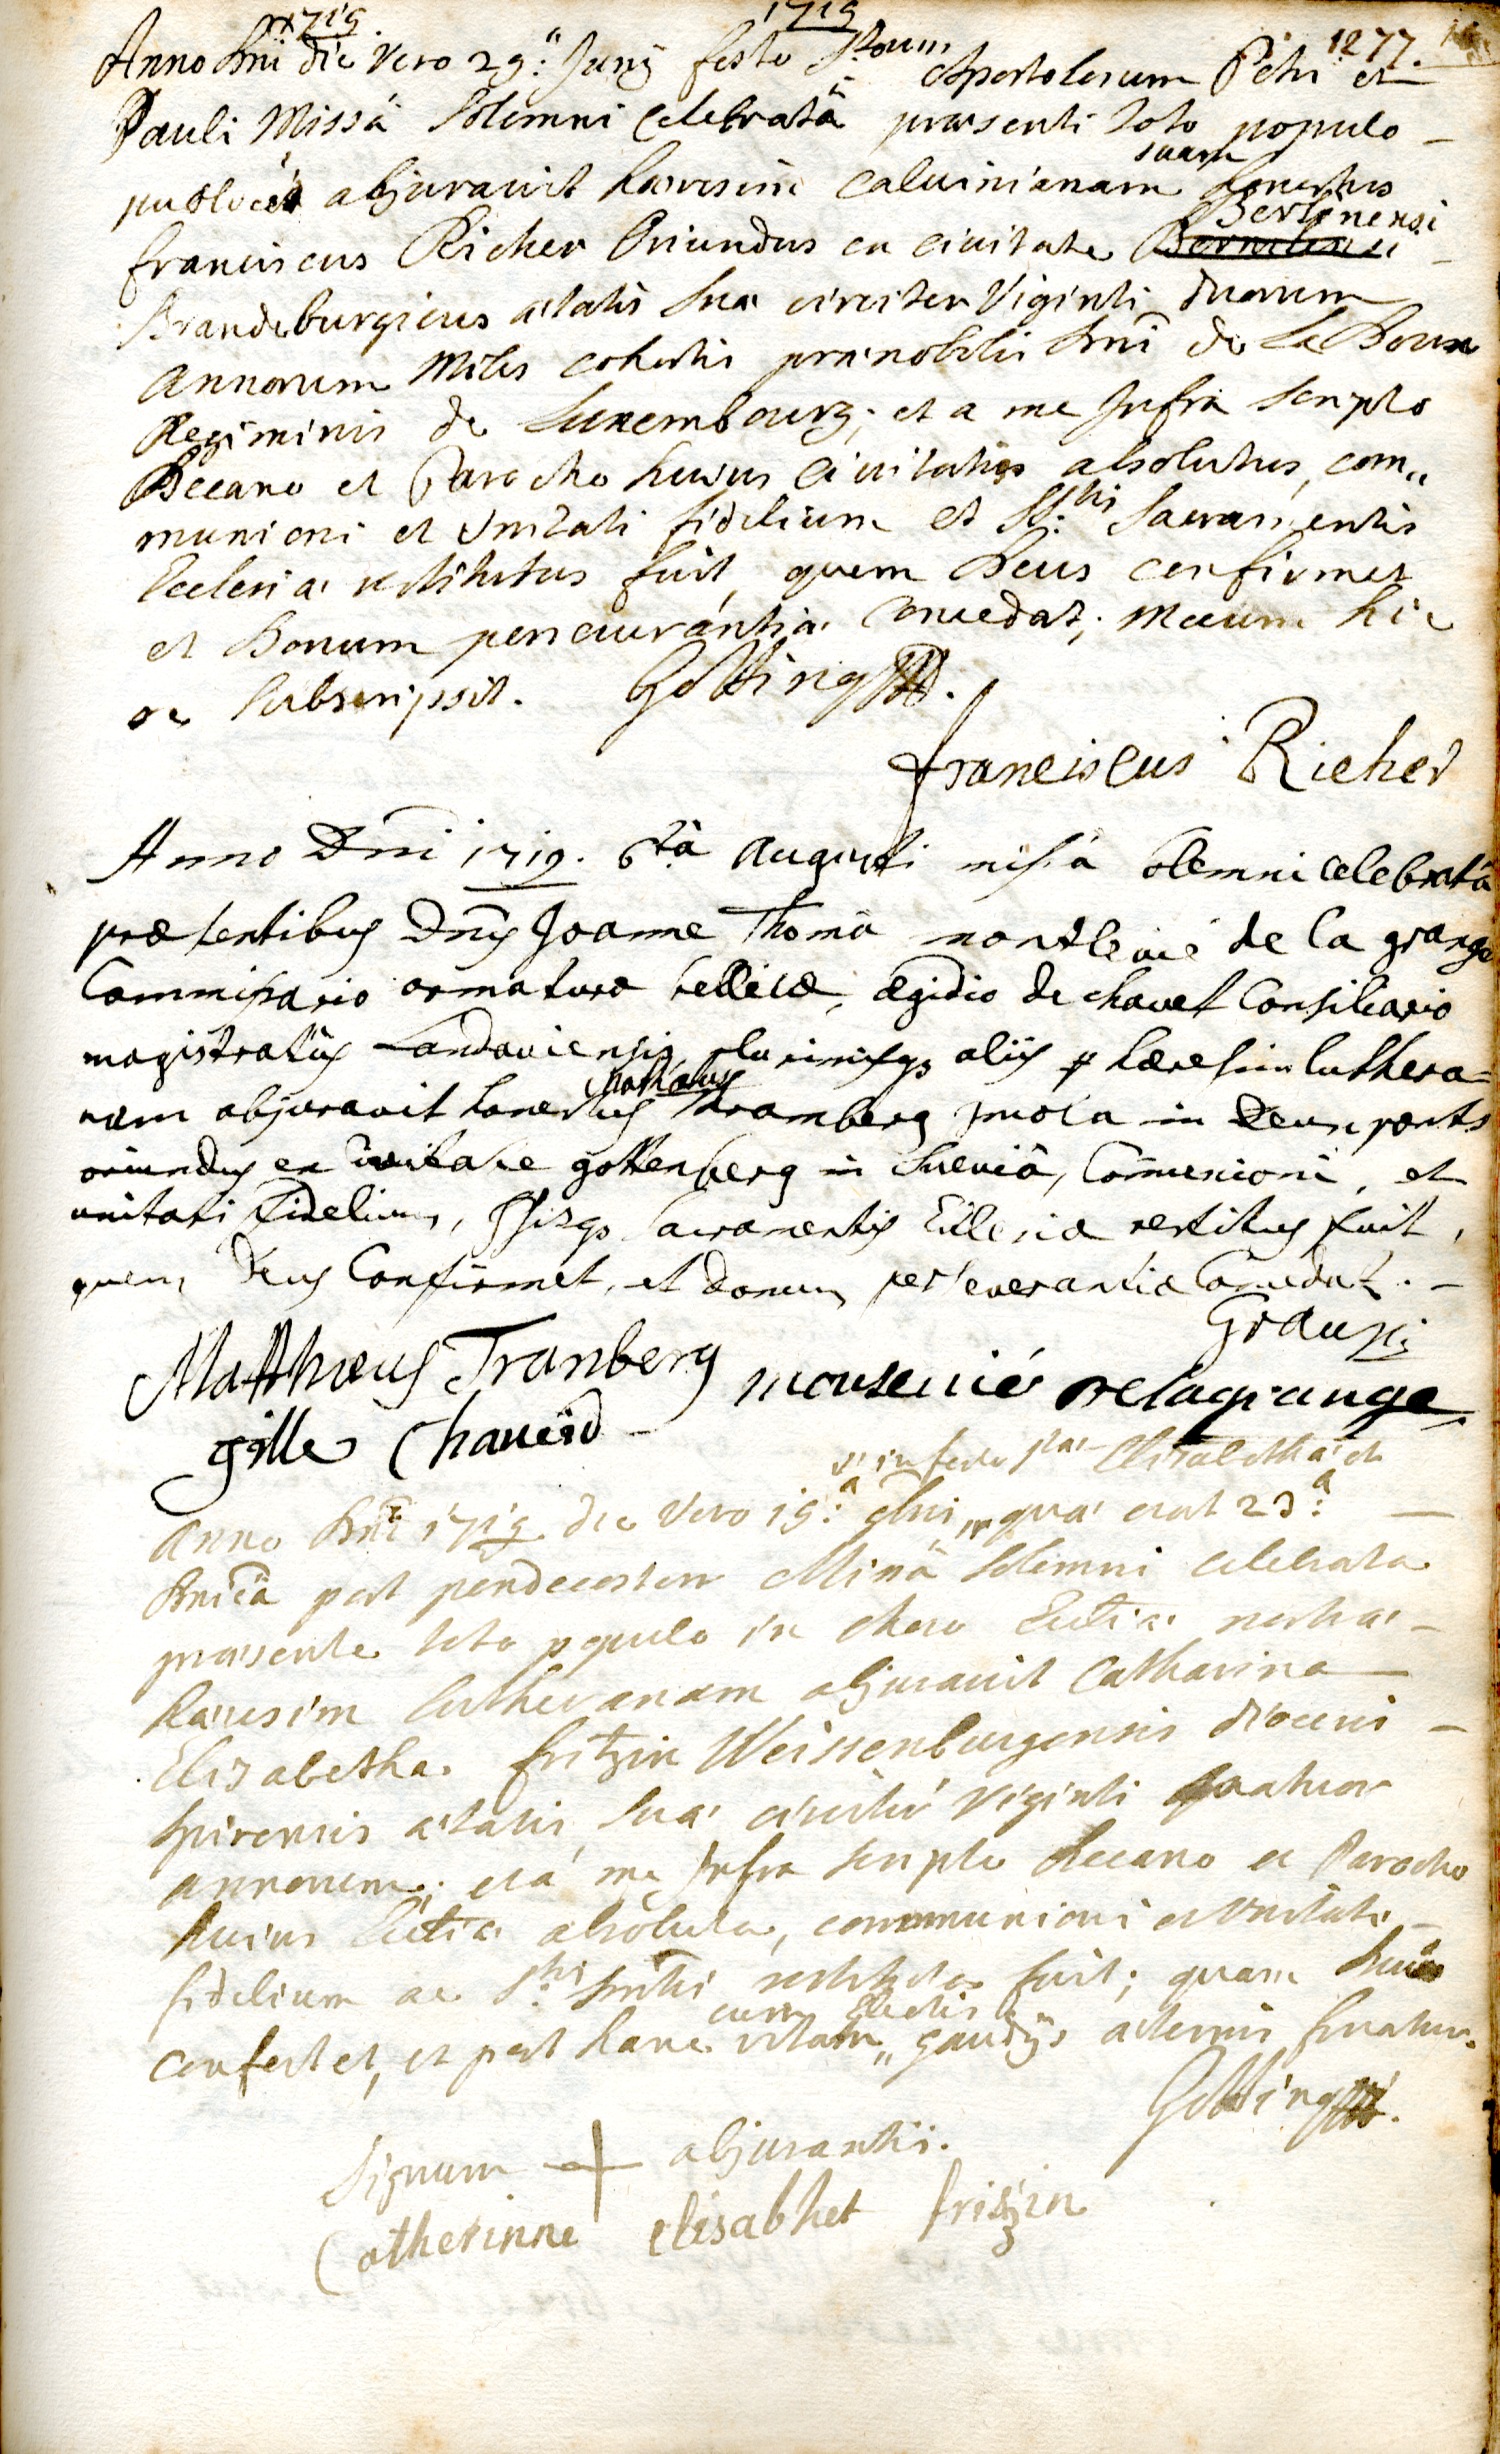 1719 1719
1277.
Anno Dni die vero 29.a Junij festo S.torum Apostolorum Petri et
Pauli Missâ Solemni Celebratâ præsenti toto populo
publicè abjuravit hæresim suam calvinianam honestus
franciscus Richer Oriundus ex civitate Berlinensi
Brandeburgicus ætatis suæ circiter Viginti duorum
annorum Miles cohortis prænobilis Dni de La
Regiminis de Luxembourg; et a me Infra scripto
Decano et Parocho hujus Civitatis absolutus, com„
munioni et Unitati fidelium et SS.tis Sacramentis
Ecclesiæ restitutus fuit, quem Deus confirmet
et Donum perseverantiæ concedat; mecum hic
se subscripsit. Götting
franciscus Richer
Anno Dni 1719. 6tâ Augusti missâ solemni celebratâ
præsentibus Dnis Joanne Thomâ de la grange
Commissario armaturæ bellicæ, ægidio de chavet Consiliario
magistratûs Landaviensis, plurimisqz aliis hæresim luthera=
nam abjuravit honestus Mathæus Tramberg in
oriundus ex Civitate gottenberg in Sueviâ, Communioni, et
unitati fidelium, SSisqz Sacramentis Ecclesiæ restitus fuit,
quem Deus Confirmet, et donum perseverantiæ Concedat. -
Graussi
Matthæus Tranberg
monsenié delagrange
gille Chaveid
in festo Stæ Elisabethæ et
Anno Dni 1719 die vero 19.a 9bris quæ erat 23.a
Dnicâ post pendecosten Missâ Solemni celebrata
præsente toto populo in choro Ecclæ nostræ
hæresim lutheranam abjuravit Catharina
Elisabetha fritzin Weissenburgensis diocesis
Spirensis ætatis suæ circiter Viginti quatuor
annorum; et à me Infra scripto Decano et Parocho
huius Ecclæ absoluta, communioni et Unitati
fidelium ac S.tis restituta fuit; quam Deus
confortet, et post hanc vitam cum Electis gaudijs æternis fruatur.
Götting
Signum + abjurantis.
Catherinne elisabhet fritzin